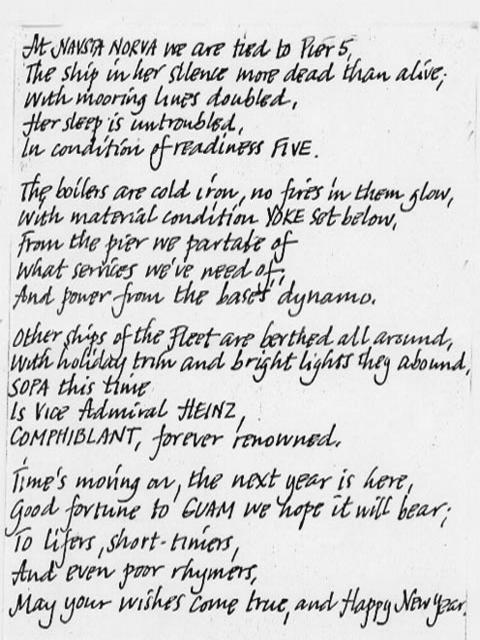 At NAVSTA NORVA we are tied to Pier 5,
The ship in her silence more dead than alive;
With mooring lines doubled,
Her sleep is untroubled,
In condition of readiness FIVE.
The boilers are cold iron, no fires in them glow,
With material condition YOKE set below,
From the pier we partake of
What services we've need of,
And power from the base's dynamo.
Other ships of the Fleet are berthed all around,
With holiday trim and bright lights they abound,
SOPA this time
Is Vice Admiral HEINZ,
COMPHIBLANT, forever renowned.
Time's moving on, the next year is here,
Good fortune to GUAM we hope it will bear;
To lifers, short-timers,
And even poor rhymers,
May your wishes come true, and Happy New Year.